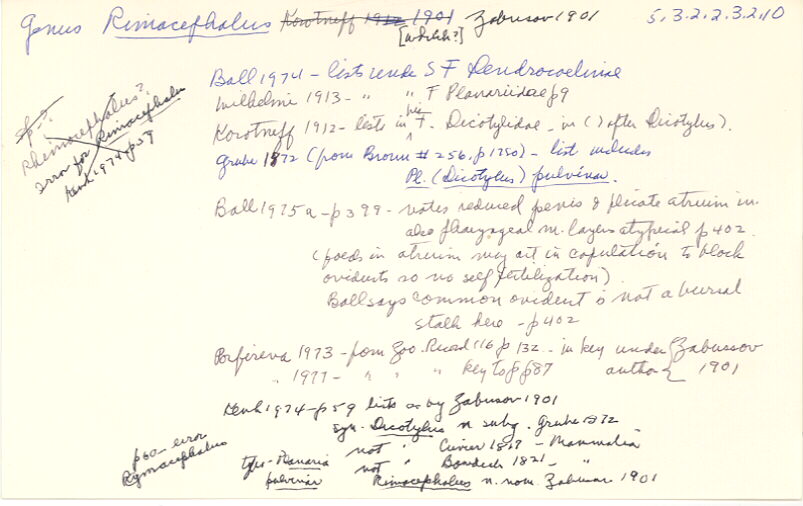 Genus Rimacephalus Korotneff 1912 1901 Zabusov 1901 5.3.2.2.3.2.10
[which?]
Ball 1974 - lists under SF Dendrocoelinae
Wilhelmi 1913 - " " F Planariidae p9
Korotneff 1912 - lists in his F. Dicotylidae - in ( ) after Dicotylus).
Grube 1872 (from Brown # 256, p 1750) - list includes
Pl. (Dicotylus) pulvinar.
sp-?
Rhimacephalus?
error for Rimacephalus
Kenk 1974-p59
Ball 1975a - p399 - notes reduced penis & plicate atrium in.
also pharyngeal m. layers atypical p402.
(folds in atrium may act in copulation to block
oviducts so no self fertilization)
Ball says common oviduct is not a bursal
stalk here - p402
Porfireva 1973 - from Zoo. Record 116 p132 - in key under { Zabussov
" 1977 - " " " key to p87 author { 1901
Kenk 1974 - p59 lists as by Zabusov 1901
syn - Dicotylus n subg. Grube 1872
not " Cuvier 1827 - Mammalia
type - Planaria not " Bowdich 1821 - "
pulvinar Rimacephalus n. nom. Zabusov 1901
p60 - error
Rymacephalus